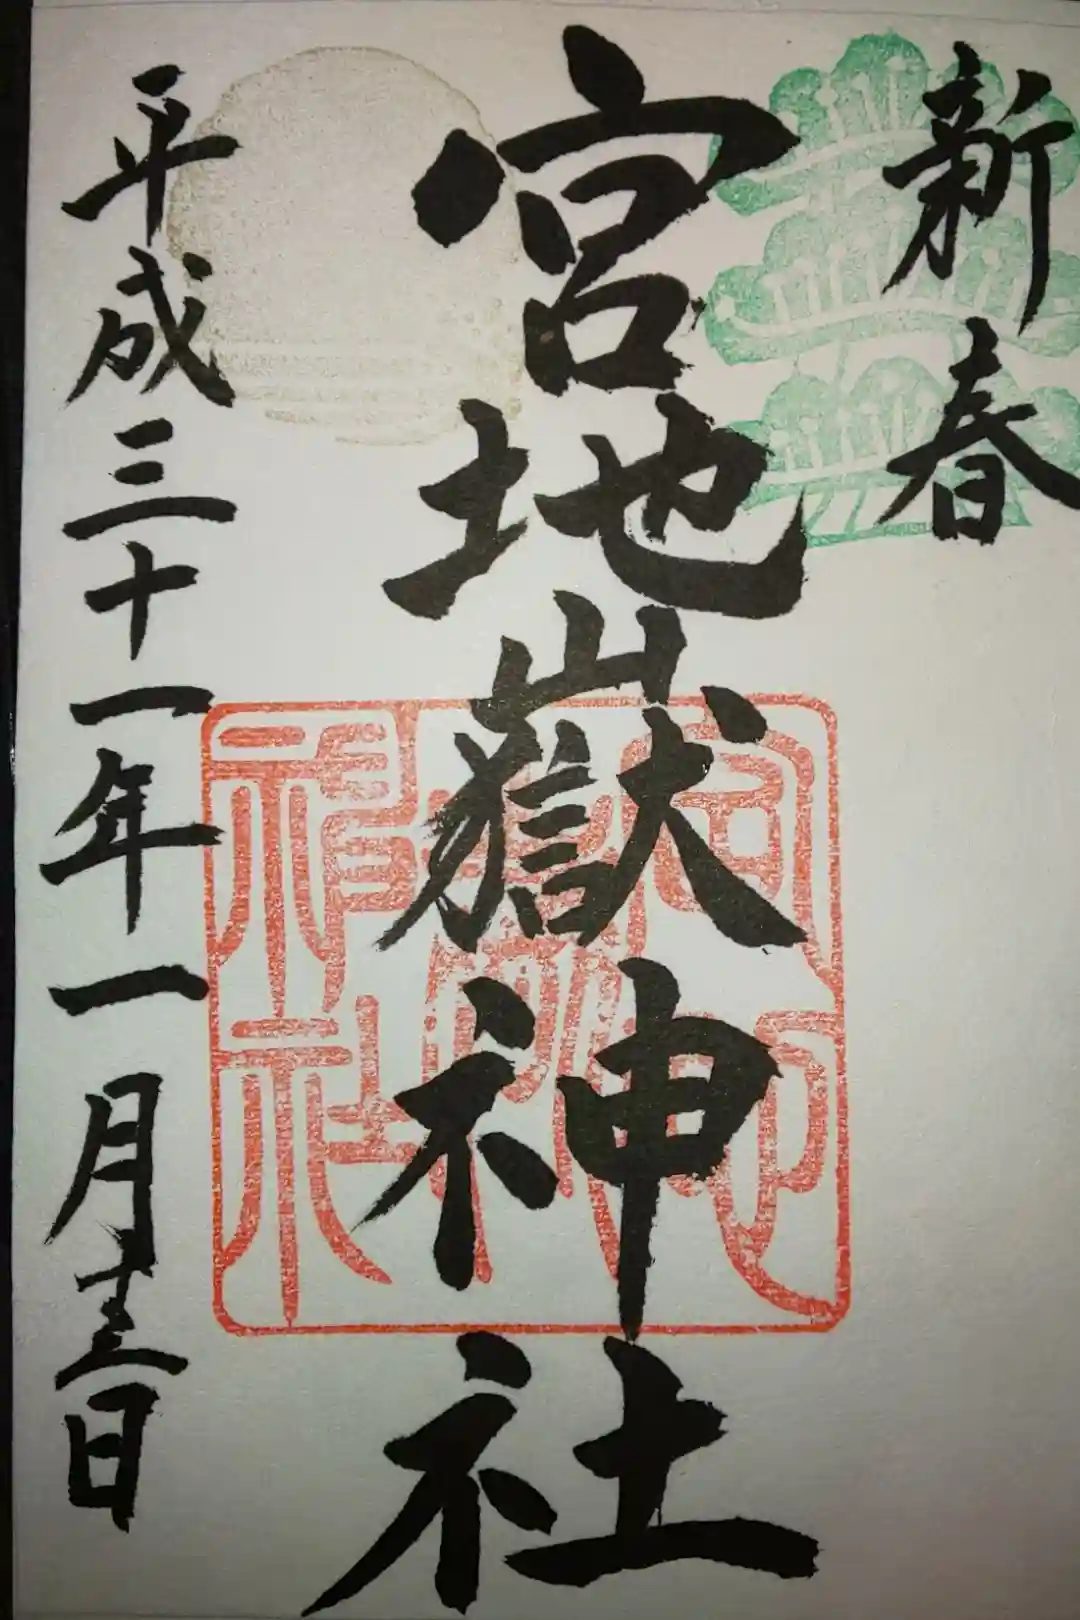 新春
宮地嶽神社
平成三十一年一月十三日
宮地
嶽
神社